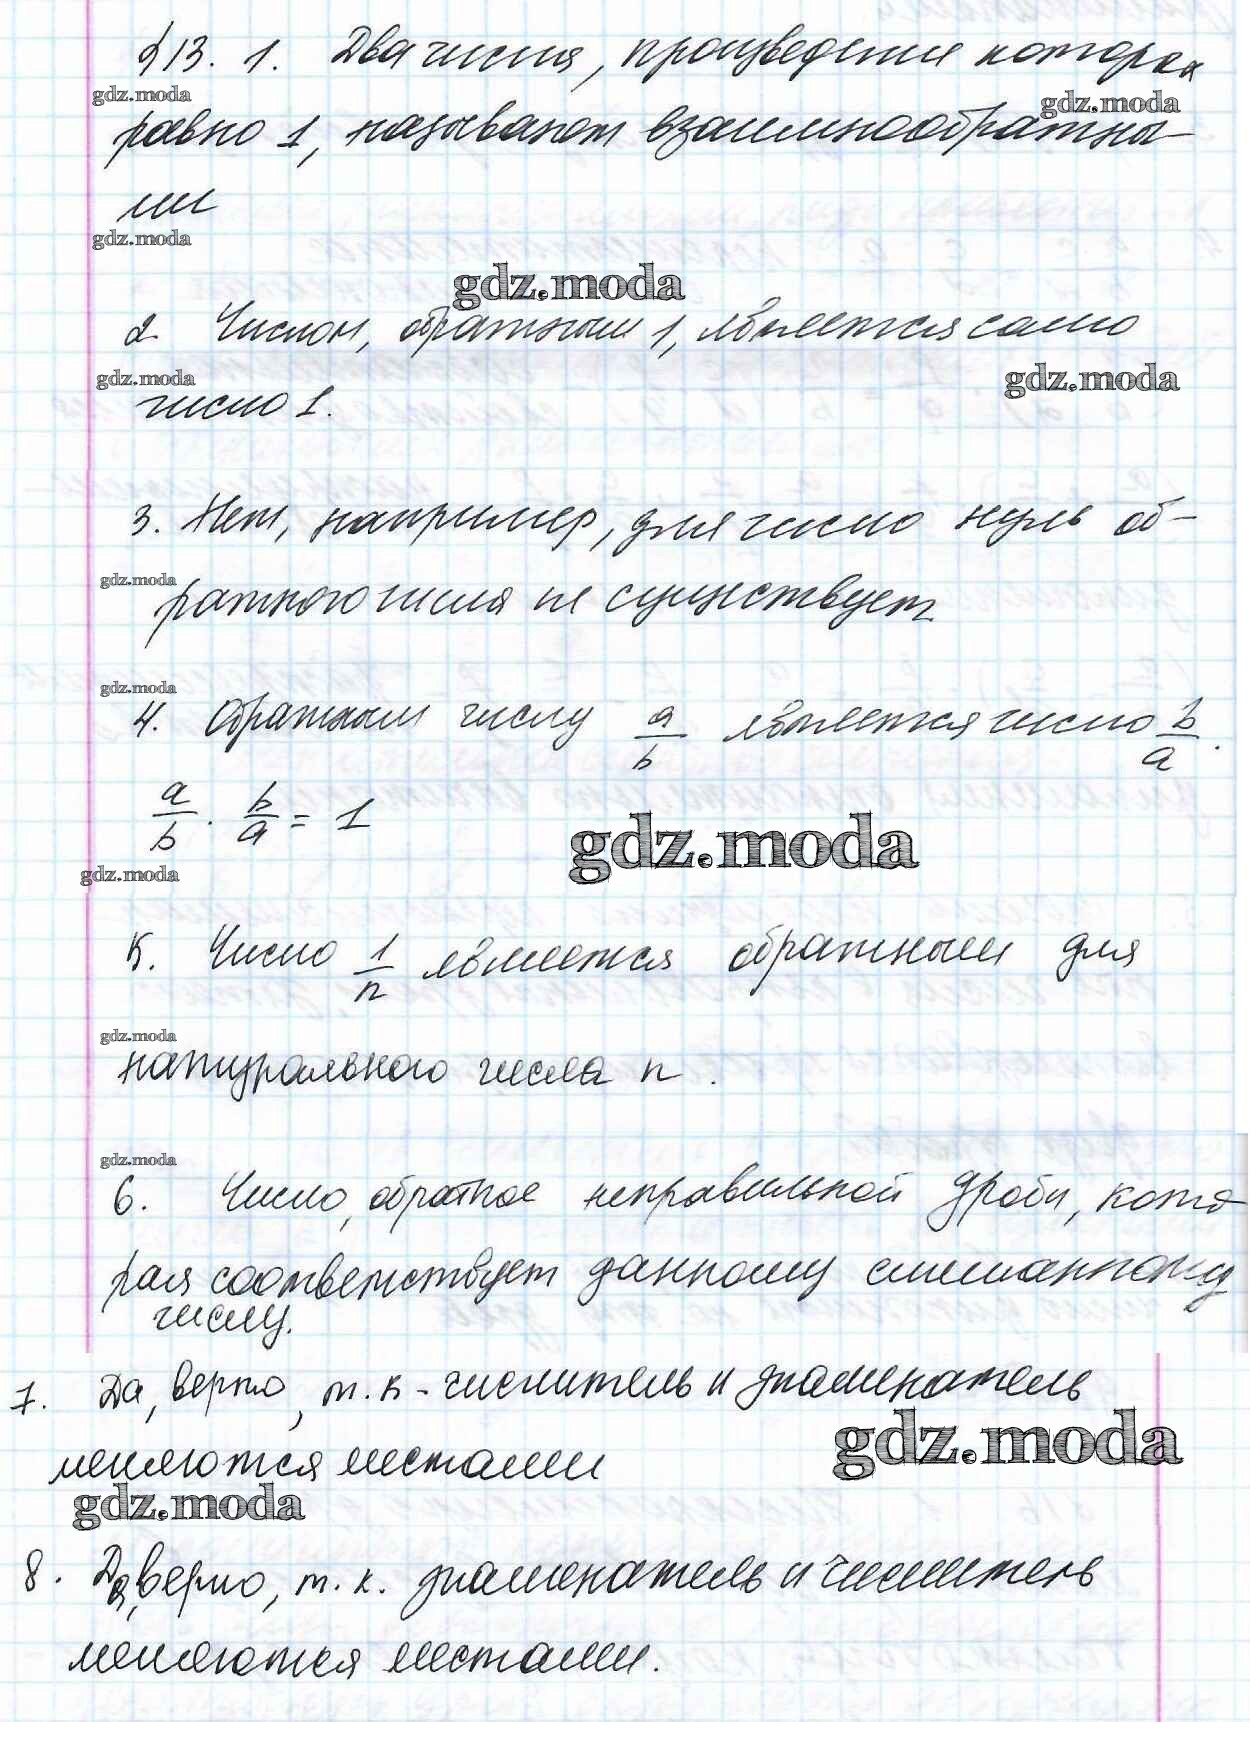 §13. 1. Два числа, произведение которых
gdz.moda
gdz.moda
равно 1, называют взаимнообратны-
ми
gdz.moda
gdz.moda
2 Числом, обратным 1, является само
gdz.moda
gdz.moda
число 1.
3. Нет, например, для число нуль об-
gdz.moda
ратного числа не существует
gdz.moda
4. Обратным числу a/b является число b/a.
a/b · b/a = 1
gdz.moda
gdz.moda
5. Число 1/n является обратным для
gdz.moda
натурального числа n.
gdz.moda
6. Число, обратное неправильной дроби, кото
рая соответствует данному смешанному
числу.
7. Да, верно, т.к - числитель и знаменатель
gdz.moda
меняются местами
gdz.moda
8. Да, верно, т.к. знаменатель и числитель
меняются местами.